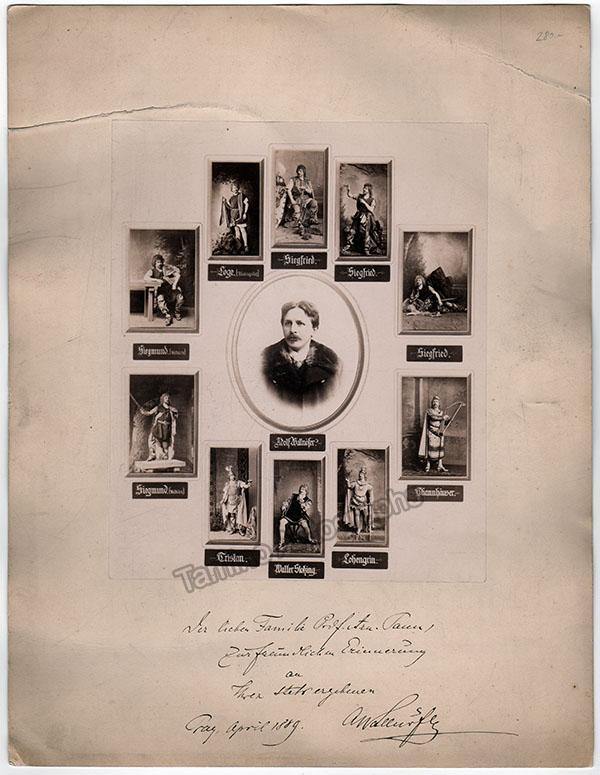 280.-
Siegfried.
Loge. (Rheingold)
Siegfried.
Siegmund. (Walküre)
Siegfried.
Adolf Wallnöfer.
Siegmund. (Walküre)
Thannhäuser.
Tristan.
Walter Stolzing.
Lohengrin.
Tamino Autographs
Der lieben Familie
zur freundlichen Erinnerung
an
Ihren stets ergebenen
Prag, April 1889. AWallnöfer